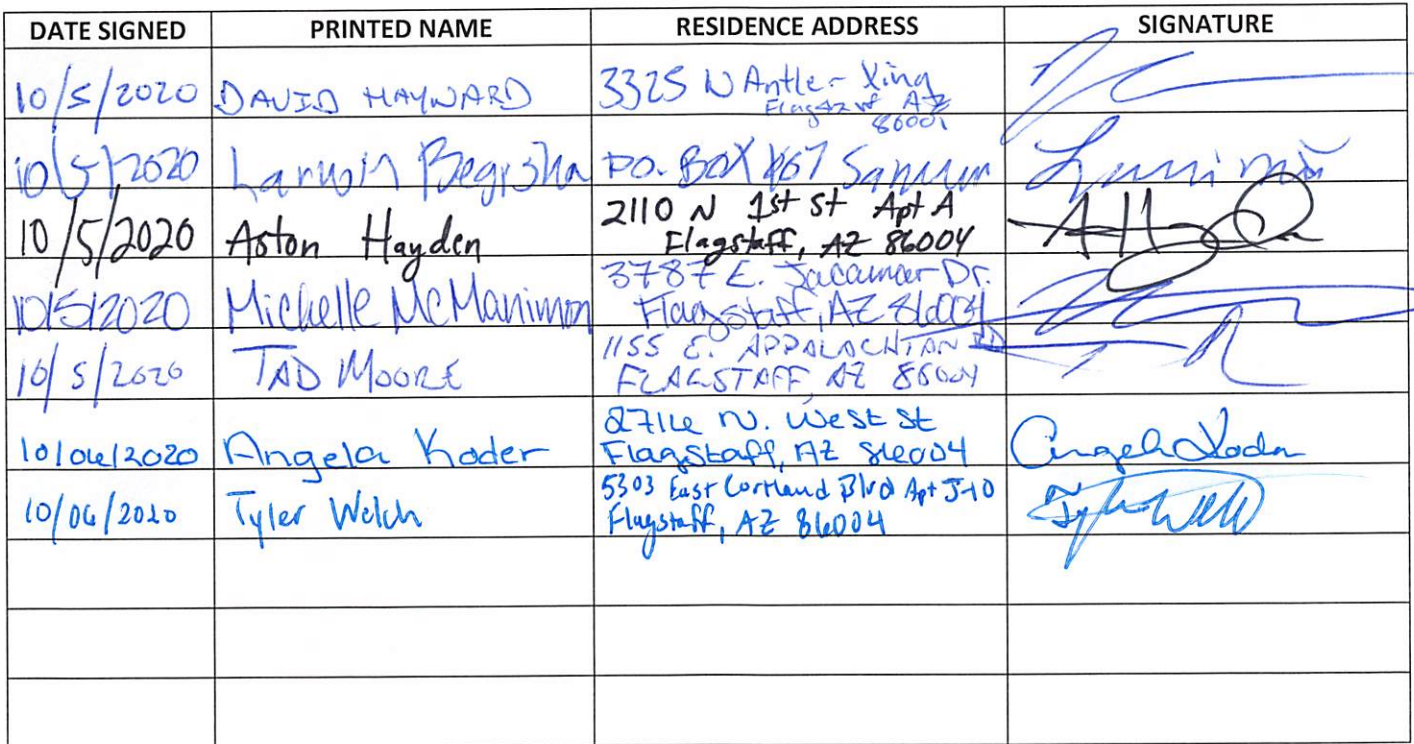 DATE SIGNED PRINTED NAME RESIDENCE ADDRESS SIGNATURE
10/5/2020 DAVID HAYWARD 3325 N Antler Xing
Flagstaff AZ
86001
10/5/2020 P.O. BOX
10/5/2020 Aston Hayden 2110 N 1st St Apt A
Flagstaff, AZ 86004
10/5/2020 Michelle McManimon 3787 E. Jacamar Dr.
Flagstaff, AZ 86004
10/5/2020 TAD MOORE 1155 E. APPALACHIAN RD
FLAGSTAFF AZ 86004
10/06/2020 Angela Koder 2716 N. West St
Flagstaff, AZ 86004 Angela Koder
10/06/2020 Tyler Welch 5303 East Cortland Blvd Apt J-10
Flagstaff, AZ 86004